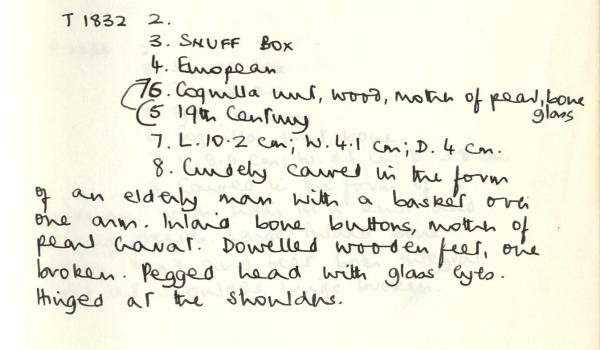 T 1832 2.
3. SNUFF BOX
4. European
6. Coquilla nut, wood, mother of pearl, bone glass
5 19th Century
7. L. 10.2 cm; W. 4.1 cm; D. 4 cm.
8. Crudely carved in the form
of an elderly man with a basket over
one arm. Inlaid bone buttons, mother of
pearl cravat. Dowelled wooden feet, one
broken. Pegged head with glass eyes.
Hinged at the shoulders.